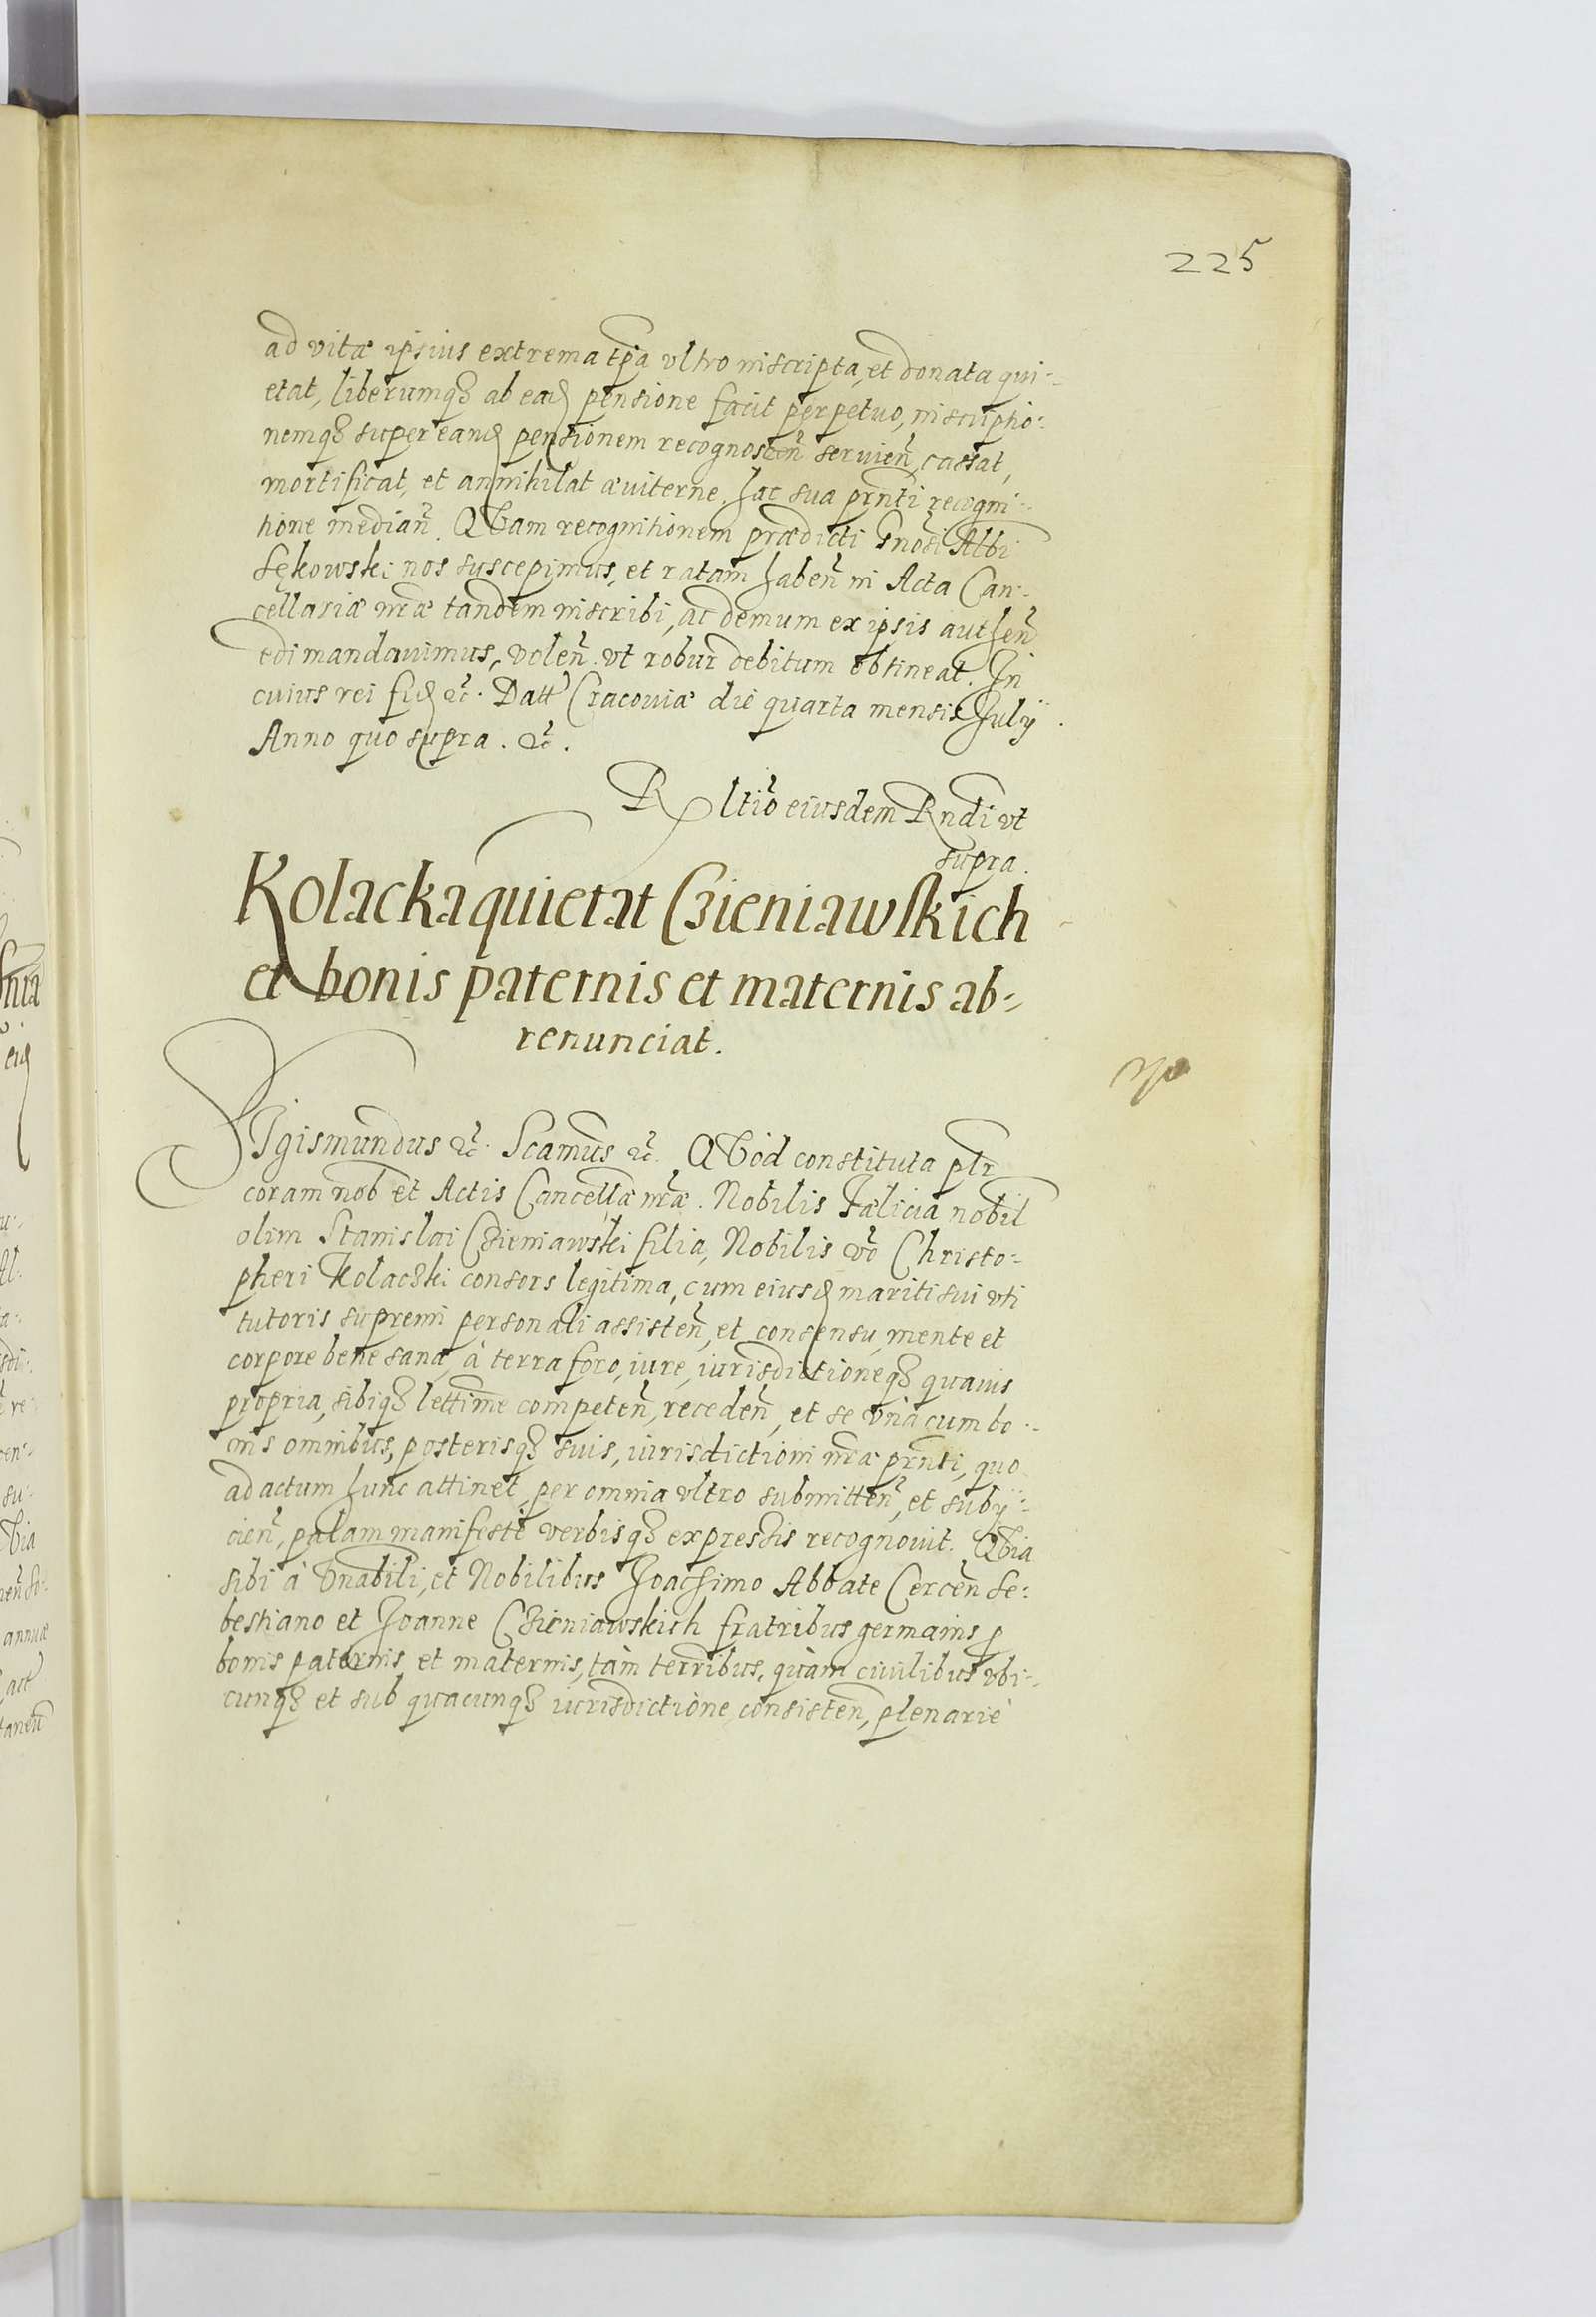 225
ad vitæ ipsius extrema tpã vltro inscripta, et donata qui-
etat, liberumqꝫ ab ead pensione facit perpetuo, inscriptio-
nemqꝫ super eand pensionem recognoscen̄ seruien̄, cassat,
mortificat, et annihilat æuiterne. hac sua prn̄ti recogni-
tione median̄. QVam recognitionem prædicti Gnōsi Albi
Sękowski nos suscepimus, et ratam haben̄ in Acta Can-
cellariæ nr̄æ tandem inscribi, ac demum ex ipsis authen̄
edi mandauimus, volen̄ vt robur debitum obtineat. In
cuius rei fid &c. Datt Cracouiæ die quarta mensis Julÿ.
Anno quo supra. &c.
Rltiō eiusdem Rn̄di vt
supra.
Kolacka quietat Czieniawskich
et bonis paternis et maternis ab-
renunciat.
SIgismundus &c. Scamus &c. QVòd constituta pltr
coram nob et Actis Cancellæ nr̄æ. Nobilis Fælicia nobil
olim Stanislai Czieniawski filia, Nobilis vō Christo-
pheri Kolaczki consors legitima, cum eiusd mariti sui vti
tutoris supremi personali assisten̄, et consensu, mente et
corpore bene sana, à terra foro, iure, iurisdictioneqꝫ quauis
propria, sibiqꝫ lettime competen̄, receden̄, et se vnà cum bo-
nis omnibus, posterisqꝫ suis, iurisdictioni nr̄æ prn̄ti, quo
ad actum hunc attinet, per omnia vltro submitten̄, et subÿ-
cien̄, palam manifestè verbisqꝫ expressis recognouit. QVia
sibi à Vn̄abili, et Nobilibus Joachimo Abbate Cercen̄ Se-
bestiano et Joanne Czieniawskich fratribus germanis p
bonis paternis et maternis, tàm terribus, quàm ciuilibus vbi-
cunqꝫ et sub quacunqꝫ iurisdictione consisten̄, plenariè